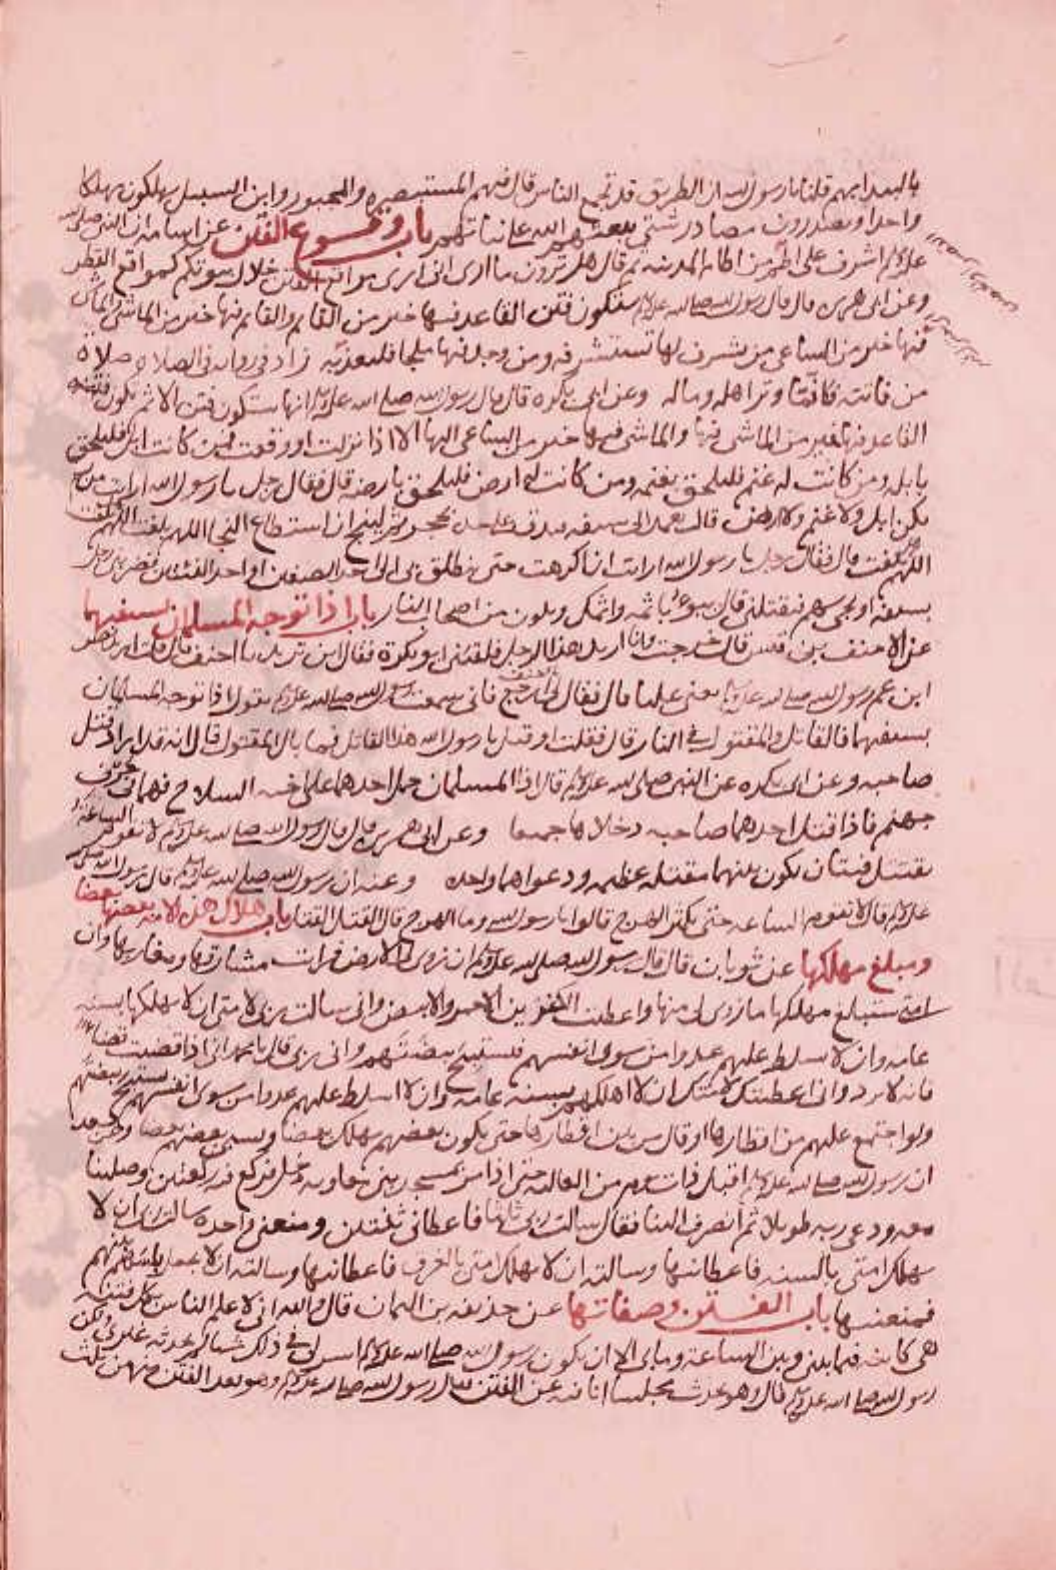 بالبيداء بهم قلنا يا رسول الله ان الطريق قد تجمع الناس قال فيهم المستبصر والمجبور وابن السبيل يهلكون مهلكا
واحدا ويصدرون مصادر شتى يبعثهم الله على نياتهم باب وقوع الفتن عن اسامة ان النبي صلى الله
عليه وسلم اشرف على اطم من اطام المدينة ثم قال هل ترون ما ارى انى ارى مواقع الفتن خلال بيوتكم كمواقع القطر
وعن ابى هريرة قال قال رسول الله صلى الله عليه وسلم ستكون فتن القاعد فيها خير من القائم والقائم فيها خير من الماشي والماشي
فيها خير من الساعى من تشرف لها تستشرفه ومن وجد فيها ملجا فليعذ به زاد فى رواية فى الصلاة صلاة
من فاتته فكانما وتر اهله وماله وعن ابى بكرة قال قال رسول الله صلى الله عليه وسلم انها ستكون فتن الا ثم تكون فتنة
القاعد فيها خير من الماشى فيها والماشى فيها خير من الساعى اليها الا اذا نزلت او وقعت فمن كانت له ابل فليلحق
بابله ومن كانت له غنم فليلحق بغنمه ومن كانت له ارض فليلحق بارضه قال فقال رجل يا رسول الله ارايت من لم
يكن ابل ولا غنم ولا ارض قال يعمد الى سيفه فيدق على حده بحجر ثم لينج ان استطاع النجا اللهم بلغت اللهم بلغت
اللهم بلغت قال فقال رجل يا رسول الله ارايت ان اكرهت حتى ينطلق بى الى احد الصفين او احد الفئتين فضربنى رجل
بسيفه او يجى سهم فيقتلنى قال يبوء باثمه واثمك ويكون من اصحاب النار باب اذا توجه المسلمان بسيفهما
عن الاحنف بن قيس قال خرجت وانا اريد هذا الرجل فلقينى ابو بكرة فقال اين تريد يا احنف قال قلت اريد نصر
ابن عم رسول الله صلى الله عليه وسلم يعنى عليا قال فقال لى يا احنف ارجع فانى سمعت رسول الله صلى الله عليه وسلم يقول اذا توجه المسلمان
بسيفهما فالقاتل والمقتول فى النار قال فقلت او قيل يا رسول الله هذا القاتل فما بال المقتول قال انه قد اراد قتل
صاحبه وعن ابى بكرة عن النبى صلى الله عليه وسلم قال اذا المسلمان حمل احدهما على اخيه السلاح فهما فى جرف
جهنم فاذا قتل احدهما صاحبه دخلاها جميعا وعن ابى هريرة قال قال رسول الله صلى الله عليه وسلم لا تقوم الساعة حتى
تقتتل فيتان يكون بينهما مقتلة عظيمة ودعواهما واحدة وعنه ان رسول الله صلى الله عليه وسلم قال رسول الله صلى الله
عليه وسلم قال لا تقوم الساعة حتى يكثر الهرج قالوا يا رسول الله وما الهرج قال القتل القتل باب هلاك هذه الامة بعضها بعضا
ومبلغ مهلكها عن ثوبان قال قال رسول الله صلى الله عليه وسلم ان زوى لى الارض فرايت مشارقها ومغاربها وان
امتى ستبلغ مهلكها ما زوى لى منها واعطيت الكنزين الاحمر والابيض وانى سالت ربى لامتى ان لا يهلكها بسنة
عامة وان لا يسلط عليهم عدوا من سوى انفسهم فيستبيح بيضتهم وان ربى قال يا محمد انى اذا قضيت قضاء
فانه لا يرد وانى اعطيتك لامتك ان لا اهلكهم بسنة عامة وان لا اسلط عليهم عدوا من سوى انفسهم يستبيح بيضتهم
ولو اجتمع عليهم من اقطارها او قال من بين اقطارها حتى يكون بعضهم يهلك بعضا ويسبى بعضهم بعضا وعن سعد
ان رسول الله صلى الله عليه وسلم اقبل ذات يوم من العالية حتى اذا مر بمسجد بنى معاوية دخل فركع فيه ركعتين وصلينا
معه ودعى ربه طويلا ثم انصرف الينا فقال سالت ربى ثلاثا فاعطانى ثنتين ومنعنى واحدة سالت ربى ان لا
يهلك امتى بالسنة فاعطانيها وسالته ان لا يهلك امتى بالغرق فاعطانيها وسالته ان لا يجعل باسهم بينهم
فمنعنيها باب الفتن وصفاتها عن حذيفة بن اليمان قال والله انى لاعلم الناس بكل فتنة
هى كائنة فيما بينى وبين الساعة وما بى الا ان يكون رسول الله صلى الله عليه وسلم اسر الى فى ذلك شيا لم يحدثه غيرى ولكن
رسول الله صلى الله عليه وسلم قال وهو يحدث مجلسا انا فيه عن الفتن قال رسول الله صلى الله عليه وسلم وهو يعد الفتن منهن ثلث